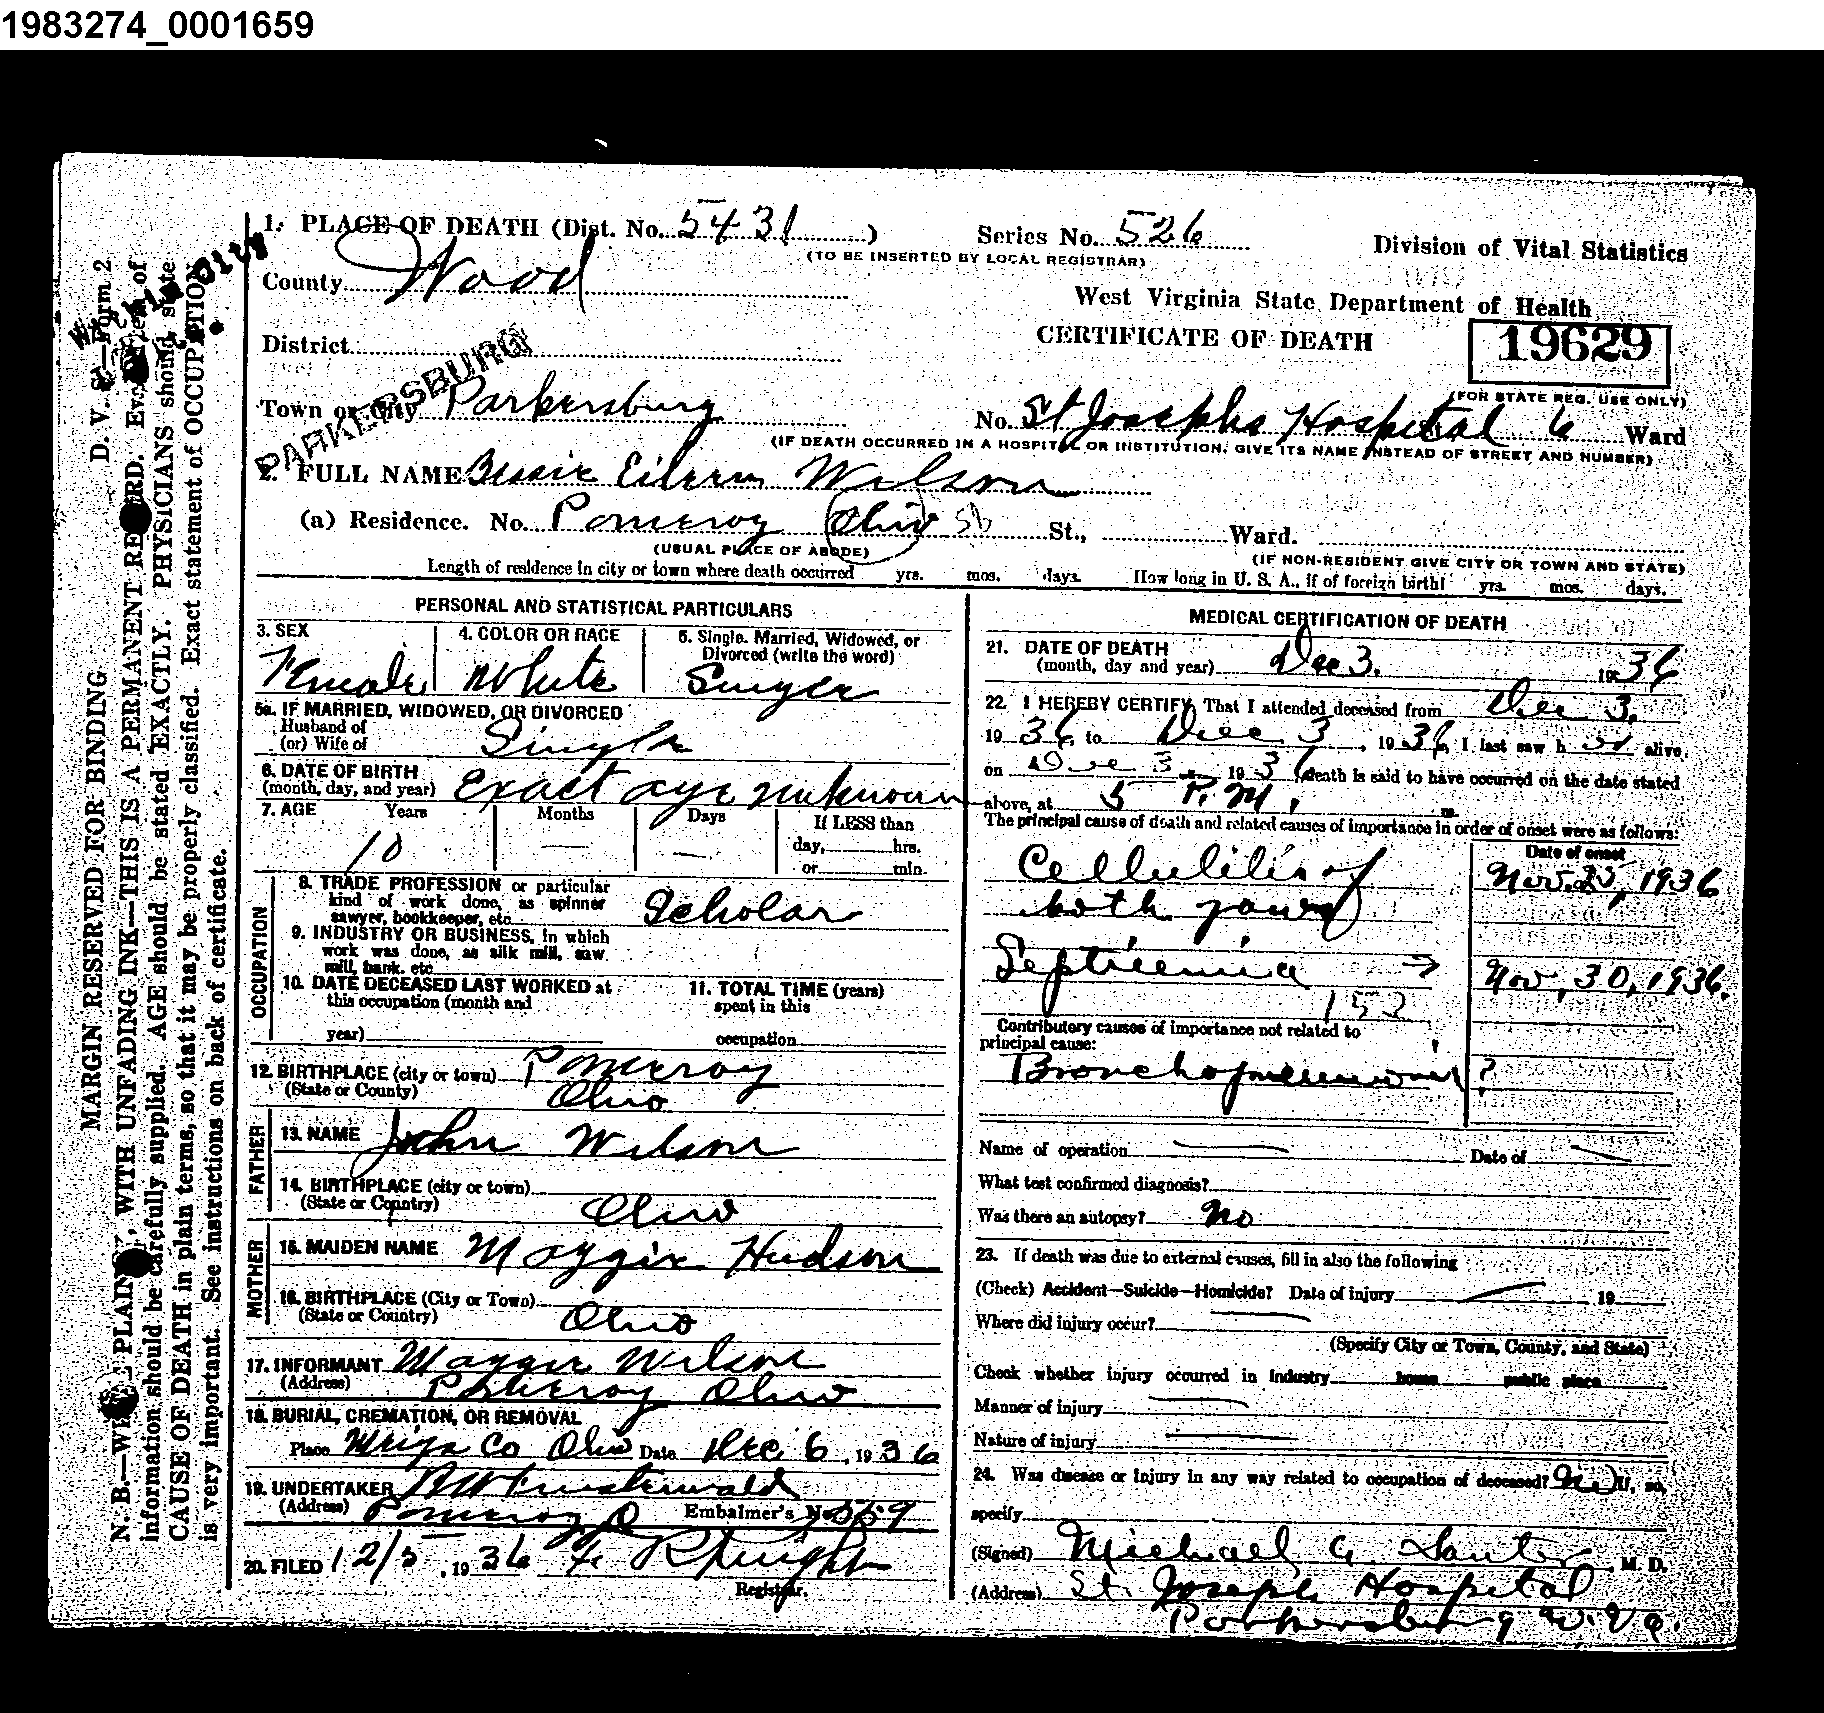 1983274_0001659
1. PLACE OF DEATH (Dist. No. 5431 ) Series No. 526 Division of Vital Statistics
(TO BE INSERTED BY LOCAL REGISTRAR)
County Wood
West Virginia State Department of Health
CERTIFICATE OF DEATH
19629
(FOR STATE REG. USE ONLY)
District
PARKERSBURG
Town or City Parkersburg No. St Josephs Hospital 6 Ward
(IF DEATH OCCURRED IN A HOSPITAL OR INSTITUTION, GIVE ITS NAME INSTEAD OF STREET AND NUMBER)
2. FULL NAME Bessie Eileen Wilson
(a) Residence. No. Pomeroy Ohio St., Ward.
(USUAL PLACE OF ABODE) (IF NON-RESIDENT GIVE CITY OR TOWN AND STATE)
Length of residence in city or town where death occurred yrs. mos. days. How long in U. S. A., if of foreign birth? yrs. mos. days.
PERSONAL AND STATISTICAL PARTICULARS
3. SEX 4. COLOR OR RACE 5. Single, Married, Widowed, or
Divorced (write the word)
Female White Single
5a. IF MARRIED, WIDOWED, OR DIVORCED
Husband of
(or) Wife of Single
6. DATE OF BIRTH
(month, day, and year) Exact age unknown
7. AGE Years Months Days If LESS than
day, hrs.
or min.
10 — —
OCCUPATION
8. TRADE PROFESSION or particular
kind of work done, as spinner
sawyer, bookkeeper, etc. Scholar
9. INDUSTRY OR BUSINESS, in which
work was done, as silk mill, saw
mill, bank, etc.
10. DATE DECEASED LAST WORKED at
this occupation (month and
year)
11. TOTAL TIME (years)
spent in this
occupation
12. BIRTHPLACE (city or town) Pomeroy
(State or County) Ohio
FATHER
13. NAME John Wilson
14. BIRTHPLACE (city or town)
(State or Country) Ohio
MOTHER
15. MAIDEN NAME Maggie Hudson
16. BIRTHPLACE (City or Town)
(State or Country) Ohio
17. INFORMANT Maggie Wilson
(Address) Pomeroy Ohio
18. BURIAL, CREMATION, OR REMOVAL
Place Meigs Co Ohio Date Dec 6, 1936
19. UNDERTAKER
(Address) Pomeroy O Embalmer's No. 559
20. FILED 12/5, 1936
Registrar.
MEDICAL CERTIFICATION OF DEATH
21. DATE OF DEATH
(month, day and year) Dec 3. 1936
22. I HEREBY CERTIFY, That I attended deceased from Dec 3,
1936, to Dec 3, 1936, I last saw her alive
on Dec 3, 1936, death is said to have occurred on the date stated
above, at 5 P.M. m.
The principal cause of death and related causes of importance in order of onset were as follows:
Date of onset
Cellulitis of Nov. 25, 1936
both jaws
Septicemia → Nov, 30, 1936.
Contributory causes of importance not related to
principal cause:
Bronchopneumonia ?
Name of operation — Date of —
What test confirmed diagnosis?
Was there an autopsy? No
23. If death was due to external causes, fill in also the following
(Check) Accident—Suicide—Homicide? Date of injury — 19
Where did injury occur? —
(Specify City or Town, County, and State)
Check whether injury occurred in industry home public place
Manner of injury —
Nature of injury —
24. Was disease or injury in any way related to occupation of deceased? No If, so,
specify
(Signed) Michael A. Santer, M. D.
(Address) St. Joseph Hospital
Parkersburg W. Va.
MARGIN RESERVED FOR BINDING
D. V. S.—Form 2
N. B.—WRITE PLAINLY, WITH UNFADING INK—THIS IS A PERMANENT RECORD. Every item of
information should be carefully supplied. AGE should be stated EXACTLY. PHYSICIANS should state
CAUSE OF DEATH in plain terms, so that it may be properly classified. Exact statement of OCCUPATION
is very important. See instructions on back of certificate.